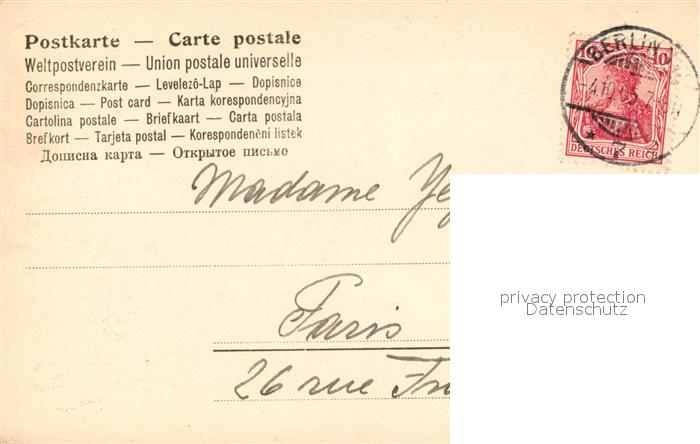 Postkarte — Carte postale
Weltpostverein — Union postale universelle
Correspondenzkarte — Levelező-Lap — Dopisnice
Dopisnica — Post card — Karta korespondencyjna
Cartolina postale — Briefkaart — Carta postala
Brefkort — Tarjeta postal — Korespondenční listek
Дописна карта — Открытое письмо
10 10
BERLIN
DEUTSCHES REICH
Madame
privacy protection
Datenschutz
Paris
26 rue